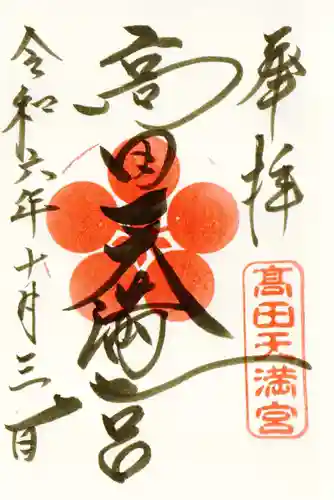 奉拝
髙田天満宮
高田天満宮
令和六年十月三十一日